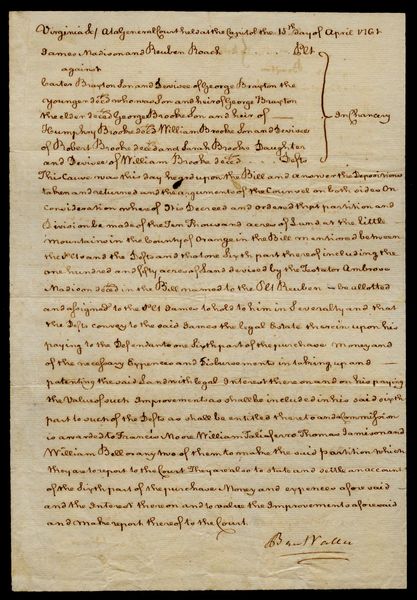 Virginia &c/ At a General Court held at the Capitol the 15th day of April 1761
James Madison and Reuben Roach . . . . . Plt
against
Carter Braxton Son and Devisee of George Braxton the
Younger decd who was Son and heir of George Braxton
the elder deced George Brooke Son and heir of
Humphry Brooke deced William Brooke Son and Devisee
of Robert Brooke deced and Sarah Brooke Daughter
and Devisee of William Brooke deced . . . . . Defts
In Chancery
This Cause was this day heard upon the Bill and answer the Depositions
taken and returned and the arguments of the Counsel on both sides On
Consideration whereof It is Decreed and ordered that partition and
Division be made of the Ten Thousand acres of Land at the little
Mountains in the County of Orange in the Bill mentioned between
the Plts and the Defts and that one Sixth part thereof including the
one hundred and fifty acres of Land devised by the Testator Ambrose
Madison deced in the Bill named to the Plt Reuben - be allotted
and assigned to the Plt James to hold to him in Severalty and that
the Defts convey to the said James the legal Estate therein upon his
paying to the Defendants one Sixth part of the purchase Money and
of the necessary Expences and Disbursements in taking up and
patenting the said Land with legal Interest thereon and on his paying
the Value of such Improvements as shall be included in his said sixth
part to such of the Defts as shall be entitled thereto and Commission
is awarded to Francis Moore William Taliaferro Thomas Jamison and
William Bell or any two of them to make the said partition which
they are to report to the Court They are also to state and settle an account
of the Sixth part of the purchase Money and expences aforesaid
and the Interest thereon and to value the Improvements aforesaid
and Make report thereof to the Court.
Ben Waller